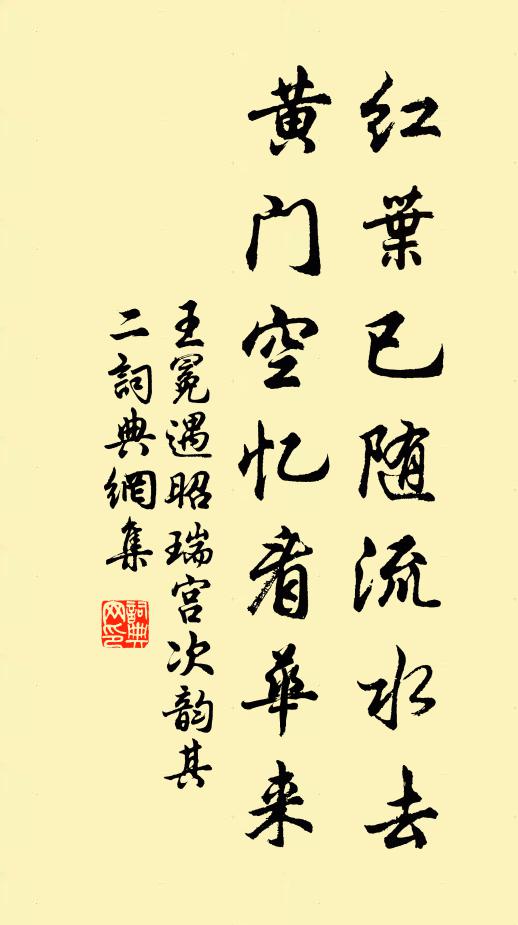 红葉已随流水去
黄门空忆看華来
王冕遇昭瑞宫次韵其
二詞典網集
詞典
网印